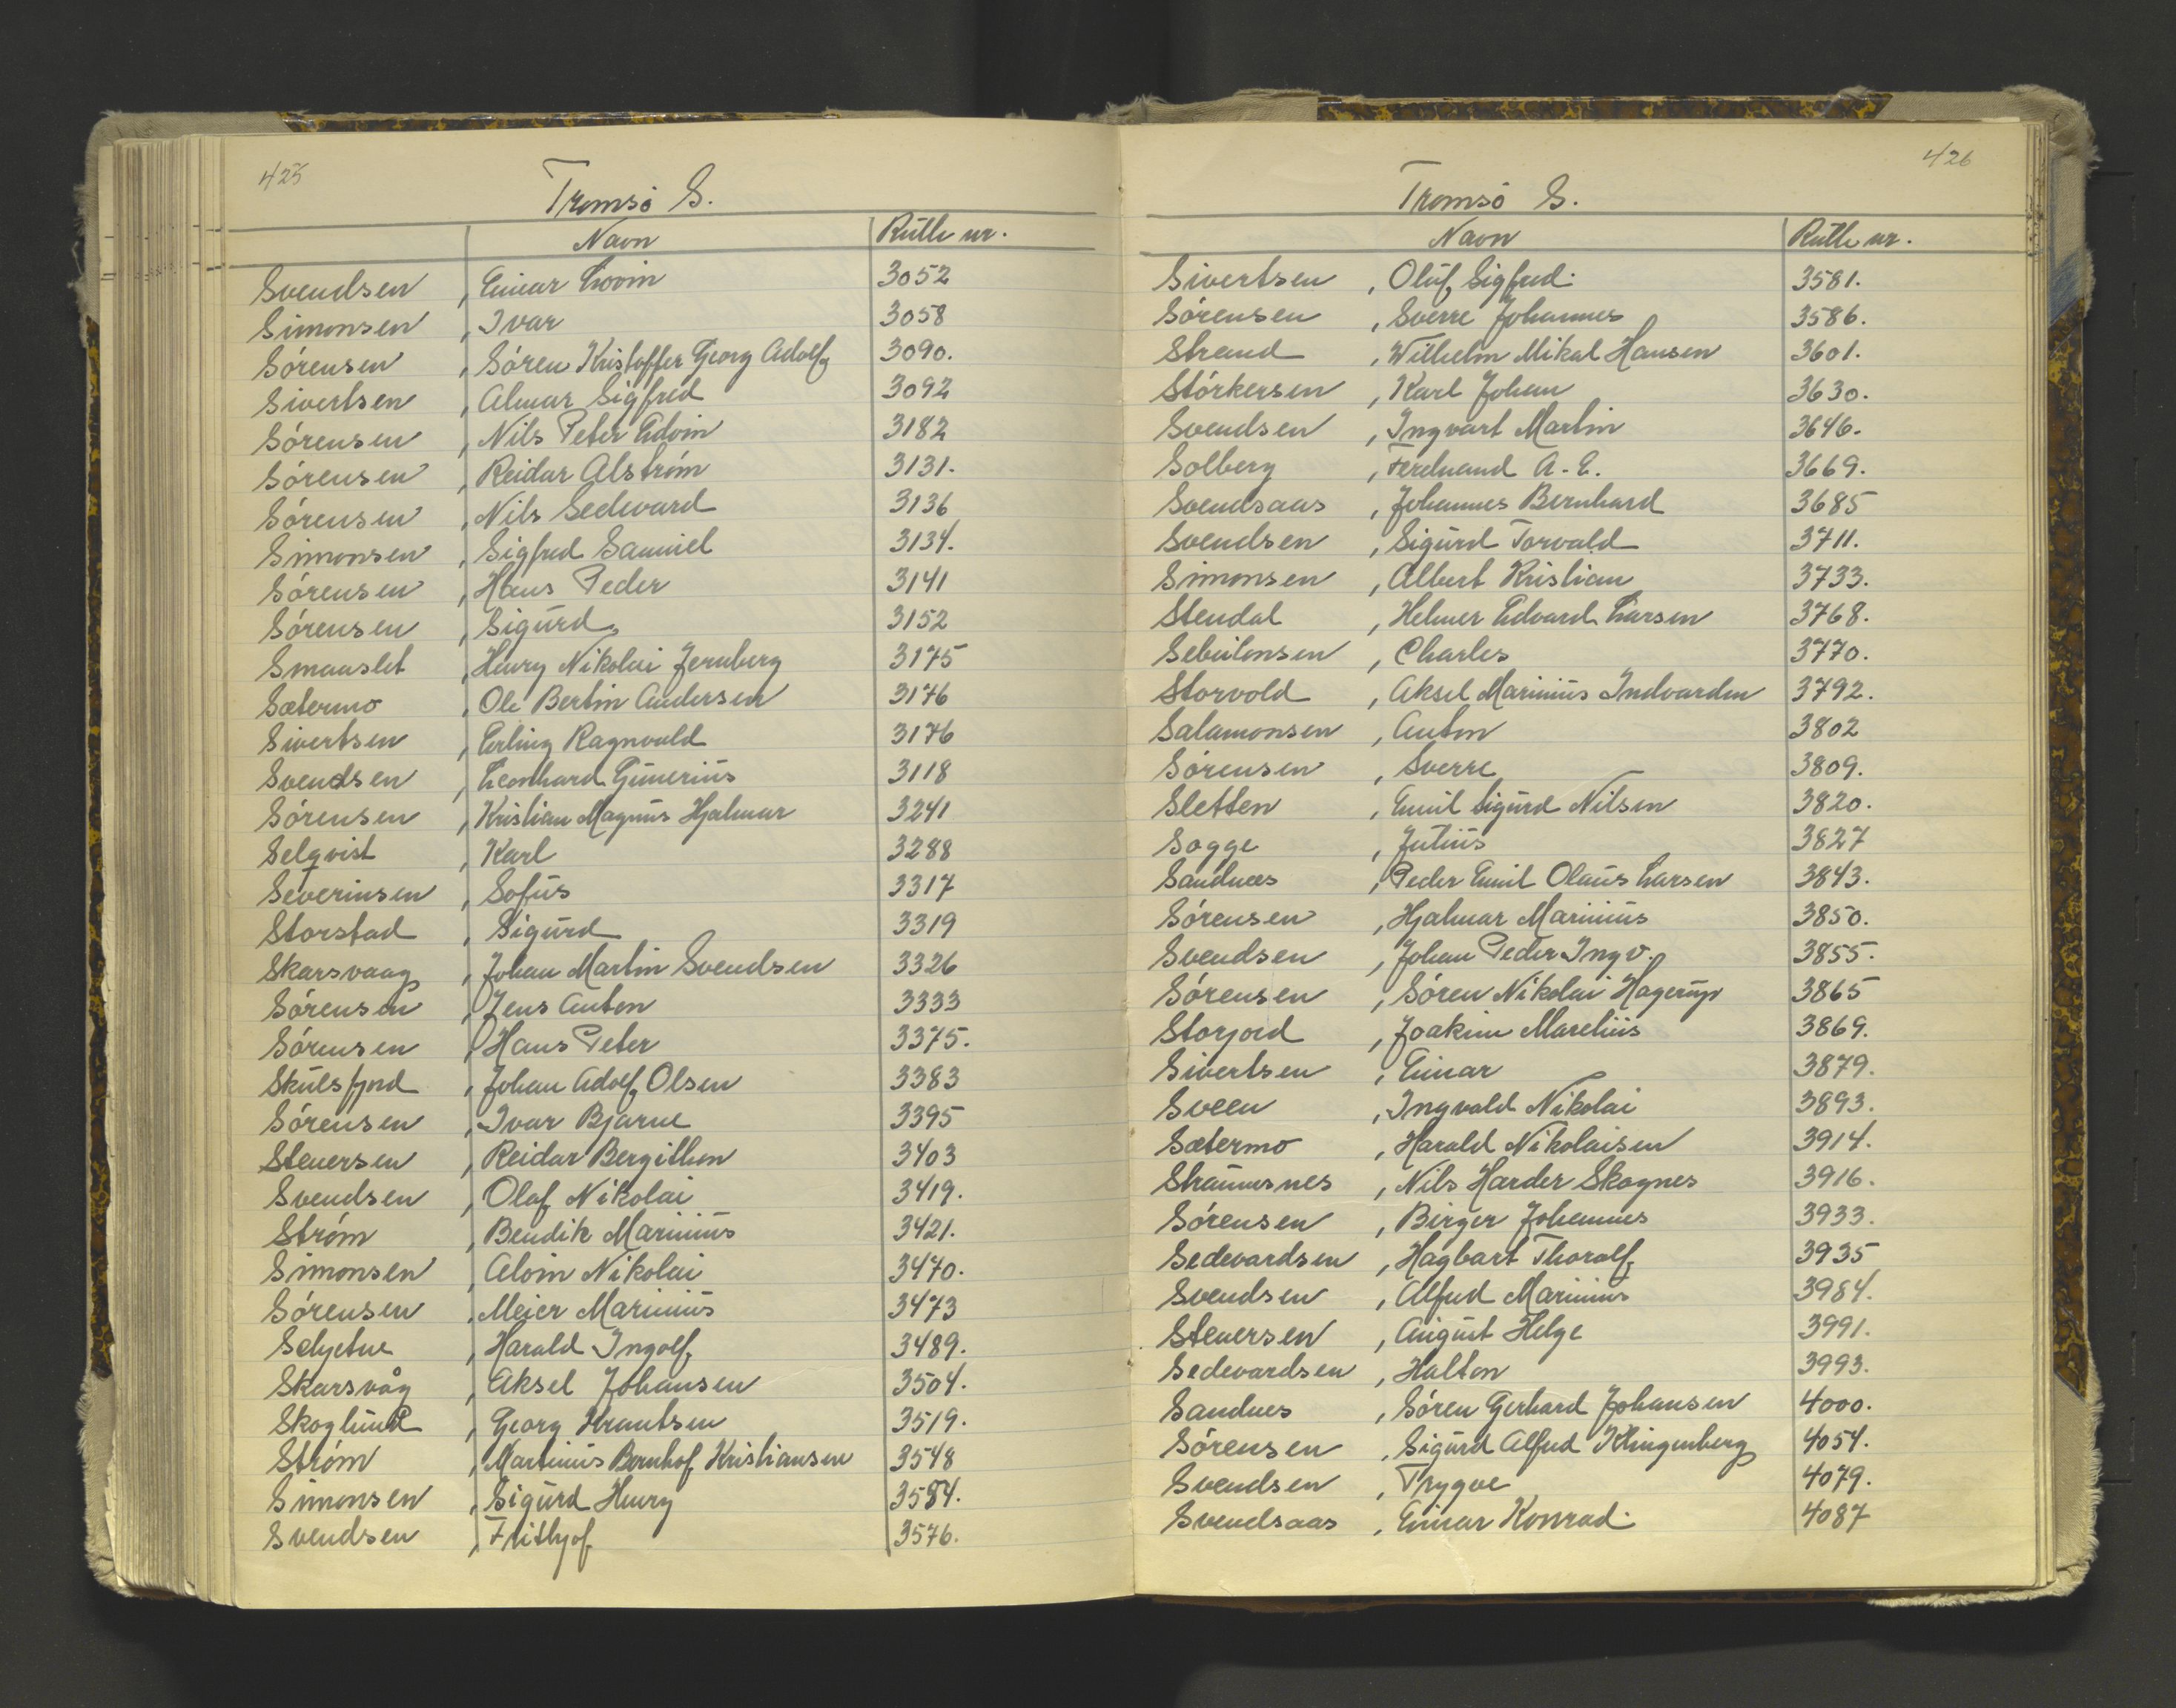 425
Tromsö S.
Navn Rulle nr.
Svendsen, Einar Lovin 3052
Simonsen, Ivar 3058
Sórensen, Sóren Kristoffer Georg Adolf 3090.
Sivertsen, Almar Sigfred 3092
Sórensen, Nils Peter Edvin 3182
Sórensen, Reidar Alström 3131.
Sórensen, Nils Sedevard 3136
Simonsen, Sigfred Samuel 3134.
Sórensen, Hans Peder 3141
Sórensen, Sigurd 3152
Smaaslet, Henry Nikolai Jernberg 3175
Sætermo, Ole Bertin Andersen 3176
Sivertsen, Erling Ragnvald 3176
Svendsen, Leonhard Gunerius 3118
Sórensen, Kristian Magnus Hjalmar 3241
Selqvist, Karl 3288
Severinsen, Sofus 3317
Storstad, Sigurd 3319
Skarsvaag, Johan Martin Svendsen 3326
Sórensen, Jens Anton 3333
Sórensen, Hans Peter 3375.
Skulsfjord, Johan Adolf Olsen 3383
Sórensen, Ivar Bjarne 3395
Stenersen, Reidar Bergithon 3403
Svendsen, Olaf Nikolai 3419.
Ström, Bendik Marinius 3421.
Simonsen, Alvin Nikolai 3470.
Sórensen, Meier Marinius 3473
Seljetne, Harald Ingolf 3489.
Skarsvåg, Aksel Johansen 3504.
Skoglund, Georg Krantsen 3519.
Ström, Martinius Bernhof Kristiansen 3548
Simonsen, Sigurd Henry 3584.
Svendsen, Frithjof 3576.
426
Tromsö S.
Navn Rulle nr.
Sivertsen, Oluf Sigfred. 3581.
Sórensen, Sverre Johannes 3586.
Strand, Wilhelm Mikal Hansen 3601.
Störkersen, Karl Johan 3630.
Svendsen, Ingvart Martin 3646.
Solberg, Ferdinand A. E. 3669.
Svendsaas, Johannes Bernhard 3685
Svendsen, Sigurd Torvald 3711.
Simonsen, Albert Kristian 3733.
Stendal, Helmer Edvard Larsen 3768.
Sebulonsen, Charles 3770.
Storvold, Aksel Marinius Indvarden 3792.
Salamonsen, Anton 3802
Sórensen, Sverre 3809.
Sletten, Emil Sigurd Nilsen 3820.
Sogge, Julius 3827
Sandnes, Peder Emil Olaus Larsen 3843.
Sórensen, Hjalmar Marinius 3850.
Svendsen, Johan Peder Ingv. 3855.
Sórensen, Sóren Nikolai Hagerup 3865
Storjord, Joakim Marelius 3869.
Sivertsen, Einar 3879.
Sveen, Ingvald Nikolai 3893.
Sætermo, Harald Nikolaisen 3914.
Straumsnes, Nils Harder Skognes 3916.
Sórensen, Birger Johannes 3933.
Sedevardsen, Hagbart Thoralf 3935
Svendsen, Alfred Marinius 3984.
Stenersen, August Helge 3991.
Sedevardsen, Halton 3993.
Sandnes, Sóren Gerhard Johansen 4000.
Sórensen, Sigurd Alfred Klingenberg 4054.
Svendsen, Trygve 4079.
Svendsaas, Einar Konrad. 4087